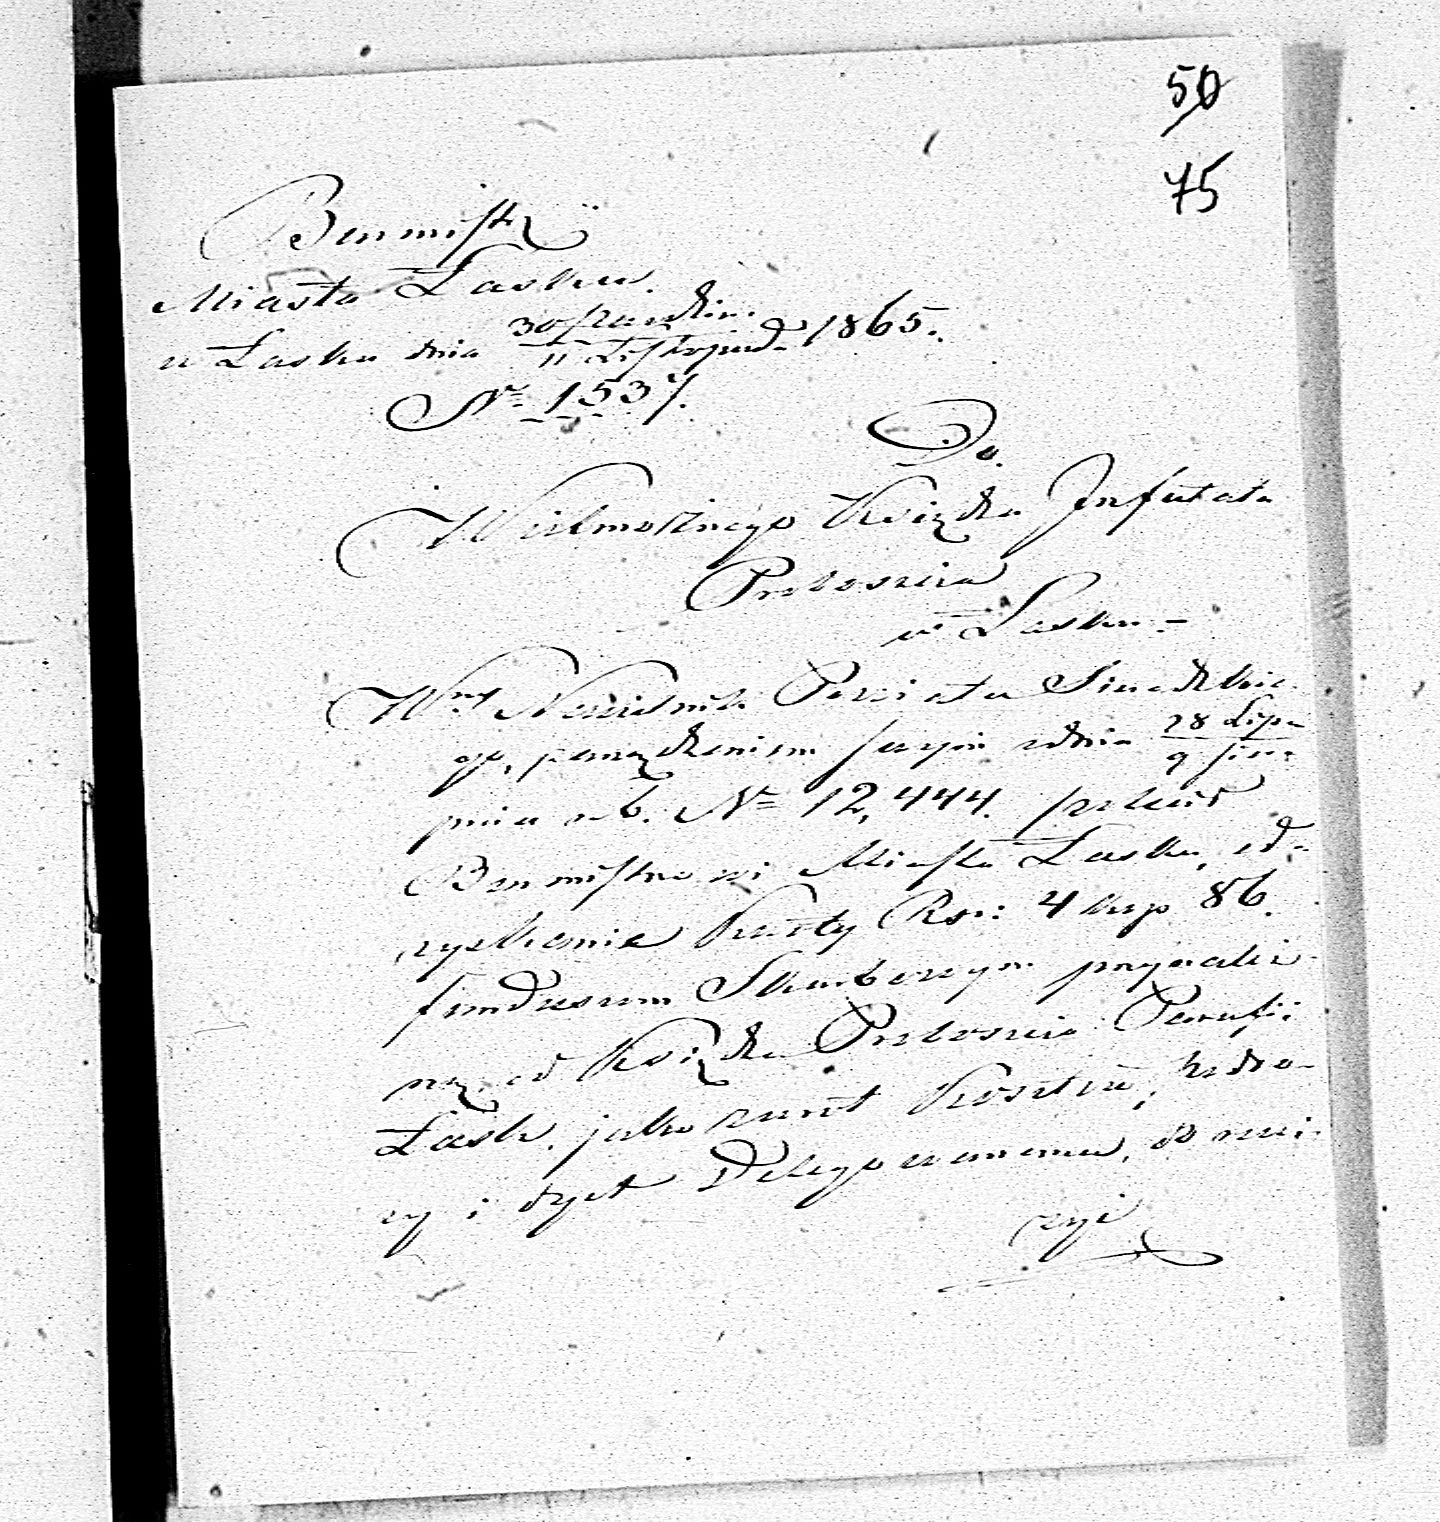 50
75
Burmistrz
Miasta Łasku.
w Łasku dnia 30 Paździer.
11 Listopada 1865.
No. 1537.
Do
Wielmożnego Księdza Infułata
Proboszcza
w Łasku.-
Wny Naczelnik Powiatu Sieradzkie
go, porządzeniem swym zdnia 28 Lipca
9 Sier
pnia r. b. No 12,444. zlecił
Burmistrzowi Miasta Łasku, od-
zyskanie kwoty Rsr: 4 kop 86.
funduszowi Skarbowym przynależ
ną, od Księdza Proboszcza Parafii
Łask, jako zwrot kosztów, 
ry i dyet Delegowanemu, do 
zyi